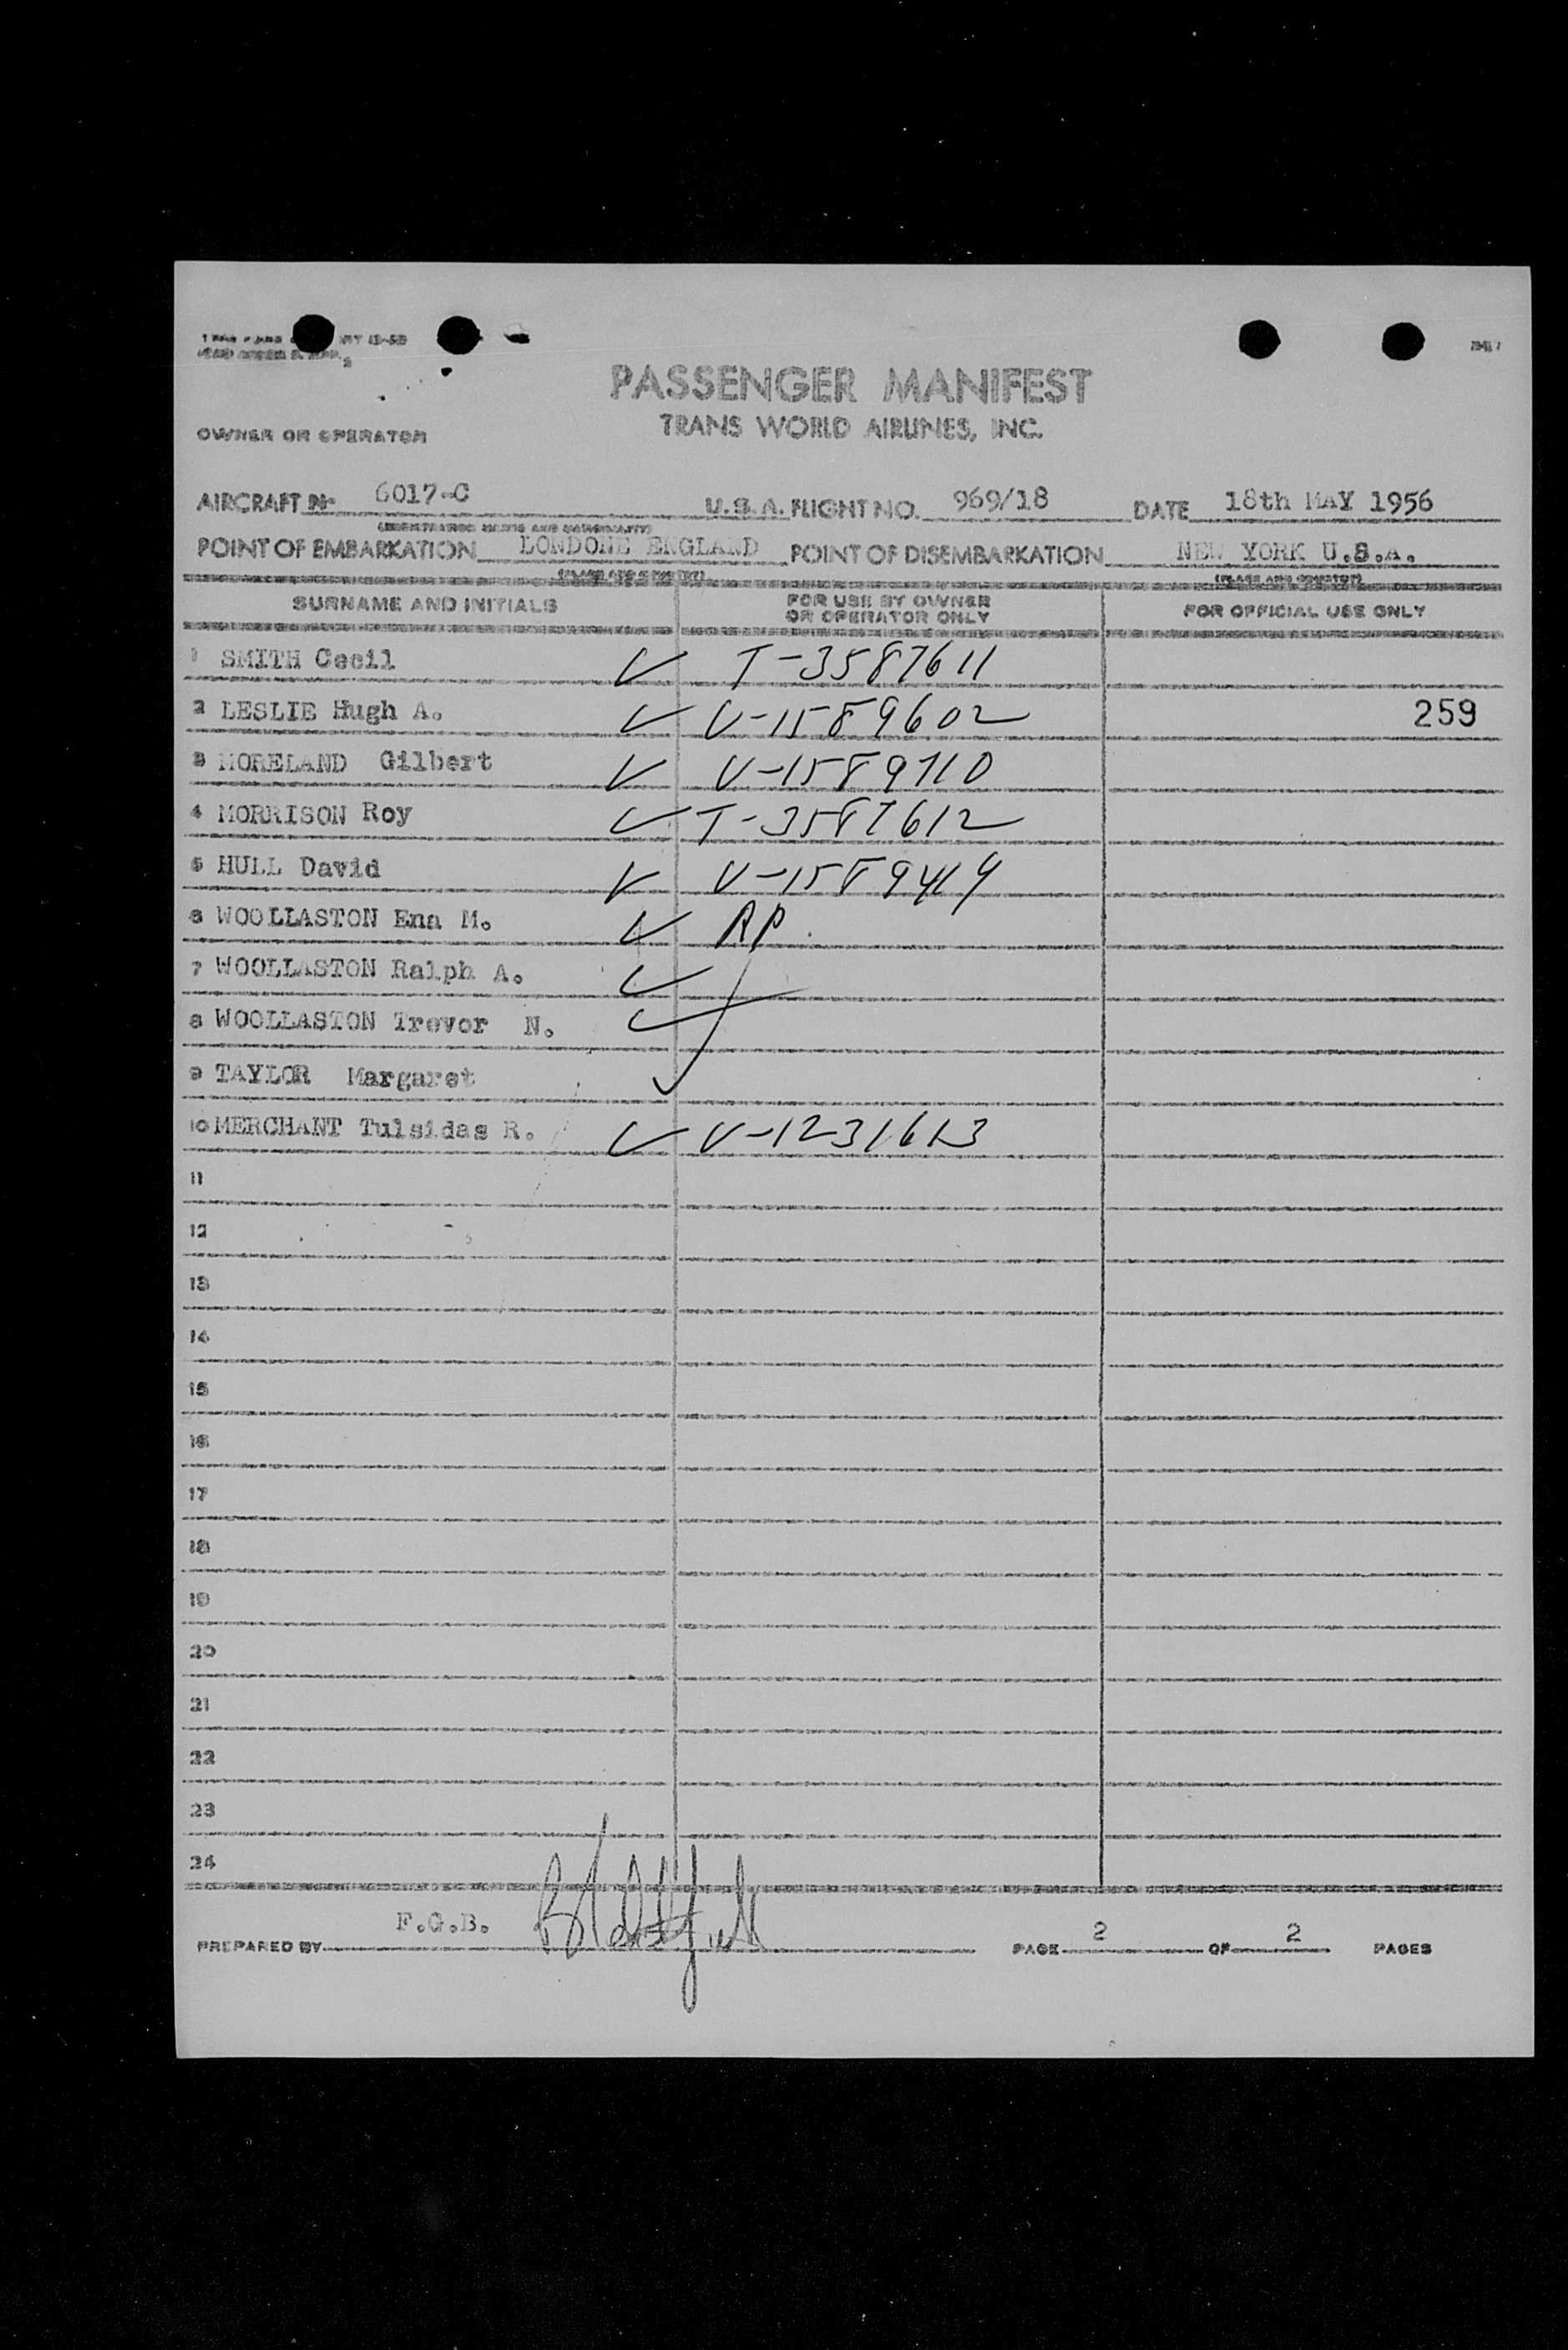 PASSENGER MANIFEST
TRANS WORLD AIRLINES, INC.
OWNER OR OPERATOR
AIRCRAFT Nr 6017-C U.S.A. FLIGHT NO. 969/18 DATE 18th MAY 1956
POINT OF EMBARKATION LONDONE ENGLAND POINT OF DISEMBARKATION NEW YORK U.S.A.
(PLACE AND COUNTRY) (PLACE AND COUNTRY)
SURNAME AND INITIALS FOR USE BY OWNER OR OPERATOR ONLY FOR OFFICIAL USE ONLY
1 SMITH Cecil T-3587611
2 LESLIE Hugh A. V-1589602 259
3 MORELAND Gilbert V-1589710
4 MORRISON Roy T-3587612
5 HULL David V-1589419
6 WOOLLASTON Ena M. RP
7 WOOLLASTON Ralph A.
8 WOOLLASTON Trevor N.
9 TAYLOR Margaret
10 MERCHANT Tulsidas R. V-1231613
11
12
13
14
15
16
17
18
19
20
21
22
23
24
PREPARED BY F.G.B. PAGE 2 OF 2 PAGES